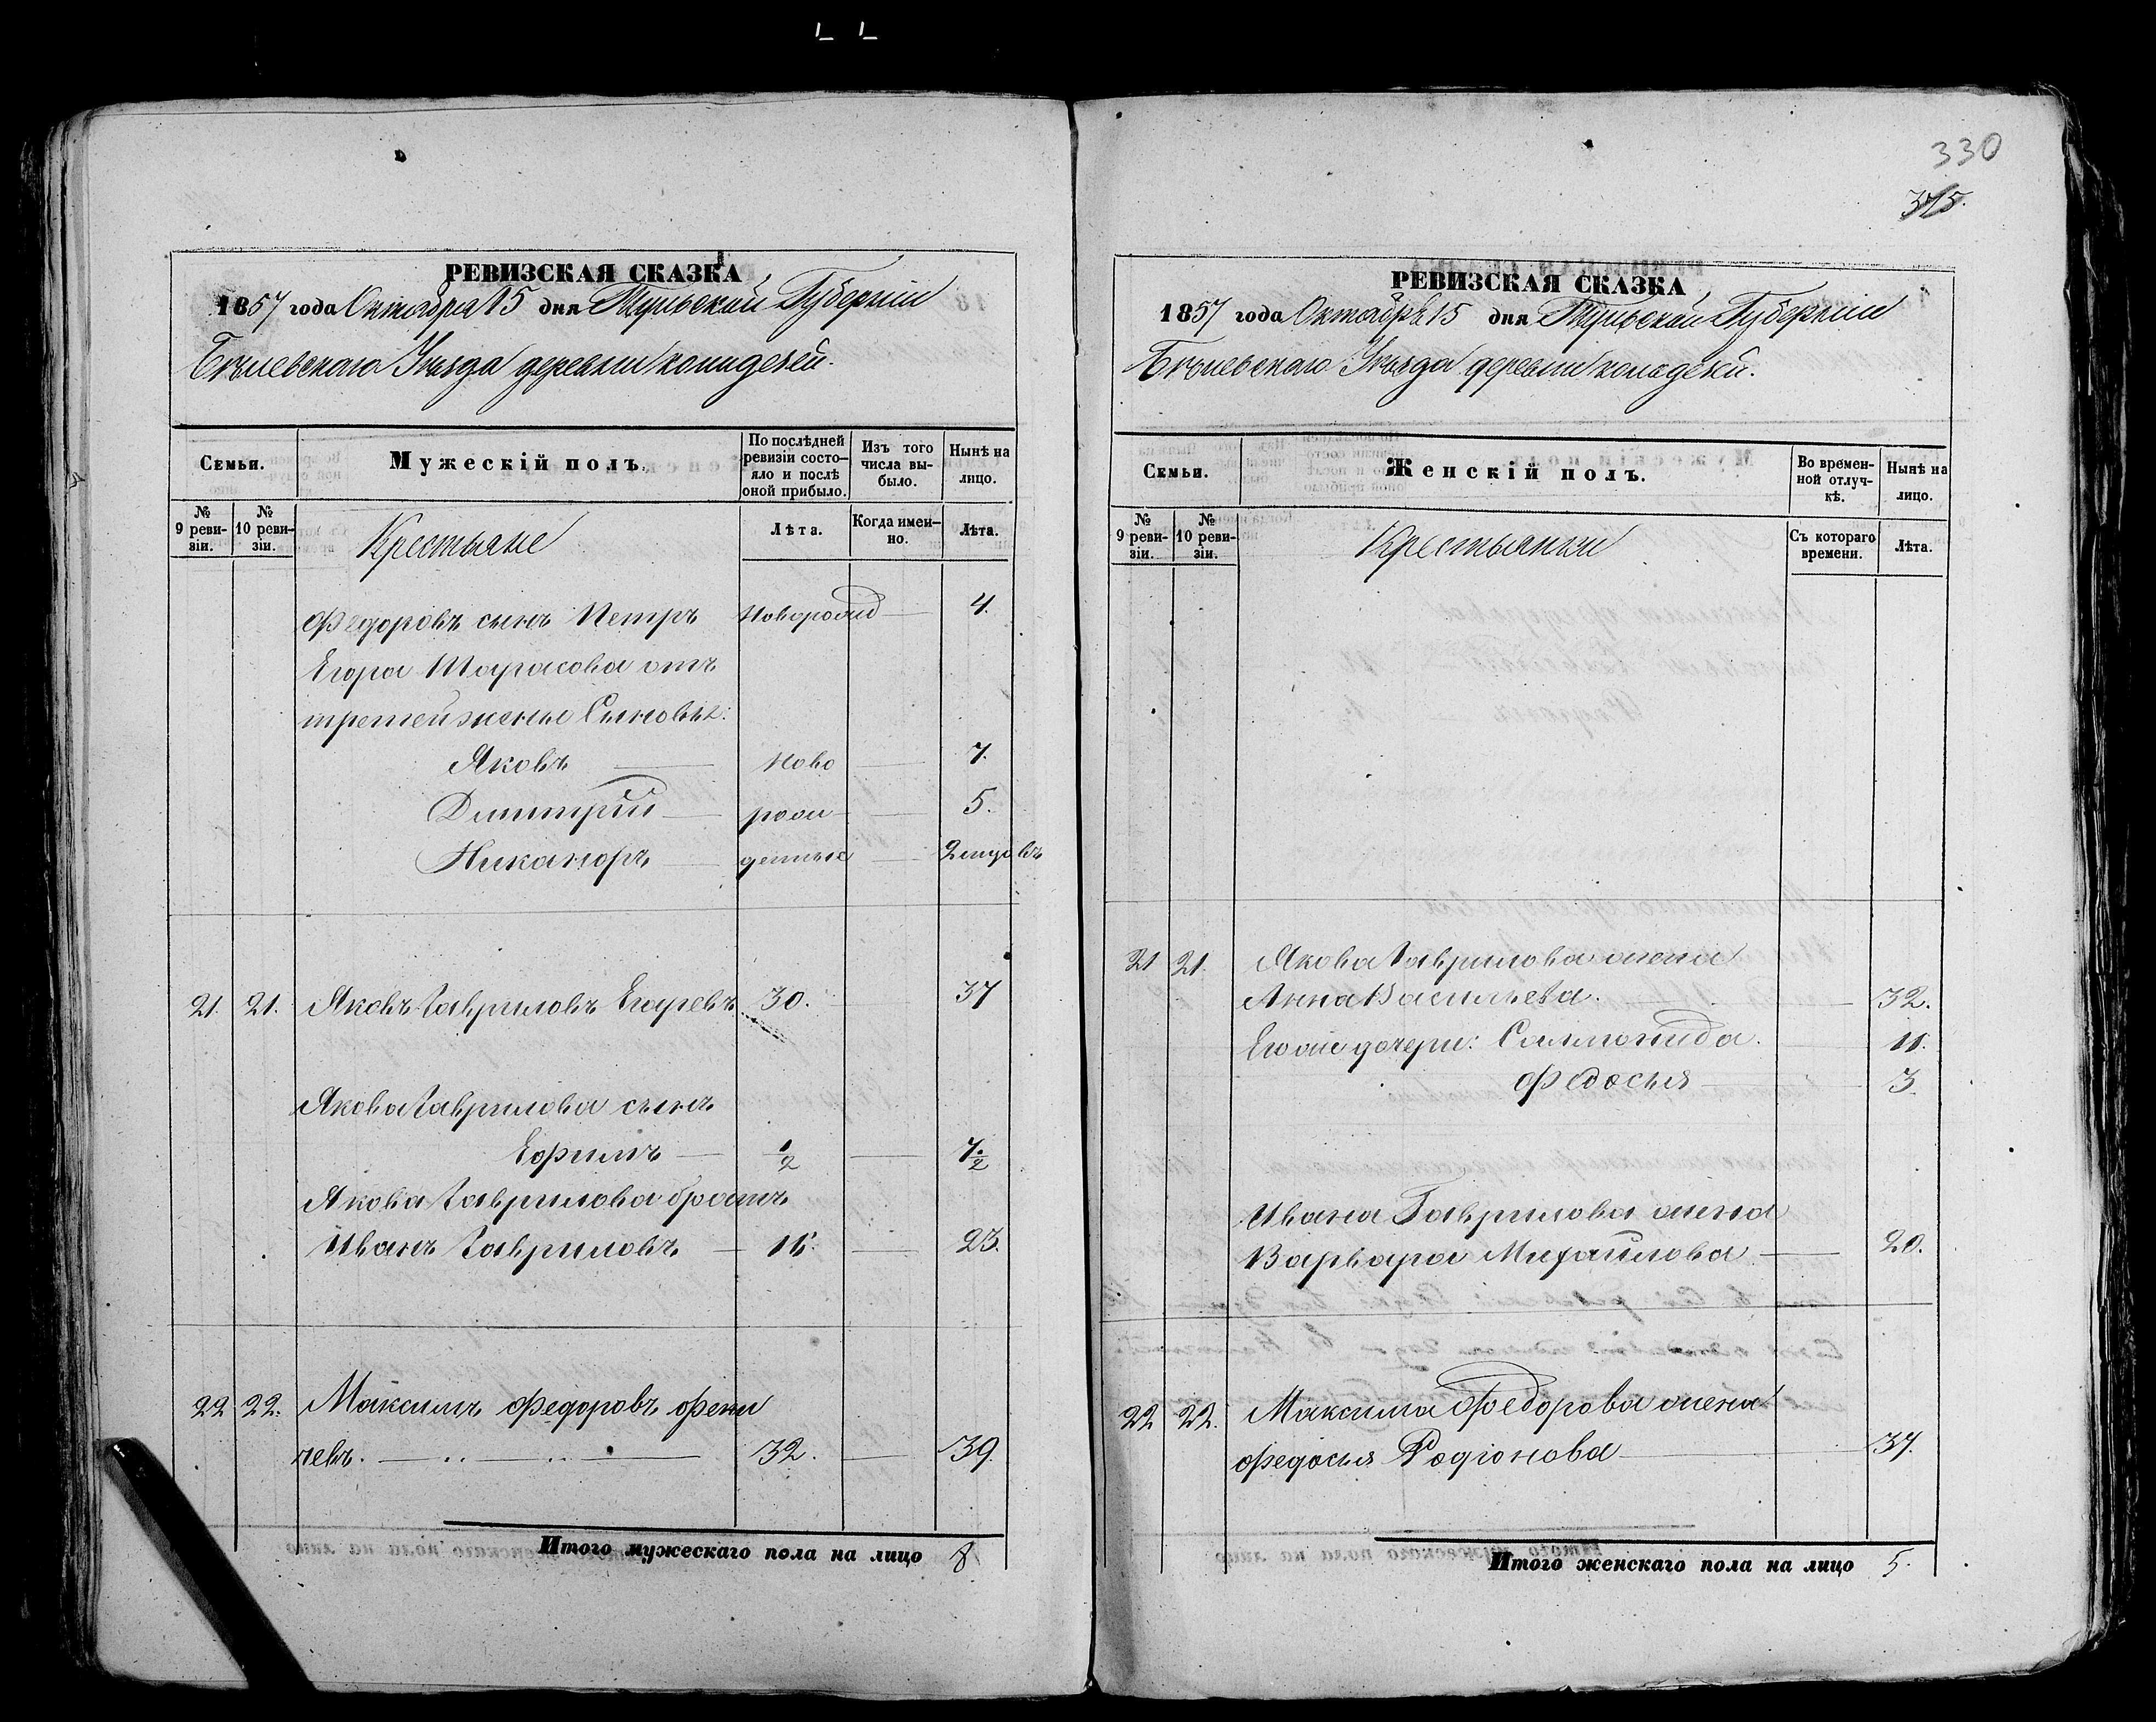 РЕВИЗСКАЯ СКАЗКА
1857 года Октября 15 дня Тульской Губернии
Бѣлевскаго Уѣзда деревни Колодезей.
Семьи.
Мужескій полъ.
По послѣдней ревизіи состояло и послѣ оной прибыло.
Изъ того числа выбыло.
Нынѣ на лицо.
№ 9 ревизіи.
№ 10 ревизіи.
Крестьяне
Лѣта.
Когда именно.
Лѣта.
Федоровъ сынъ Петръ новорожд 4.
Егора Тарасова отъ
третей жены Сыновья:
Яковъ ново 7.
Дмитрій рож 5.
Никаноръ денные
21. 21. Яковъ Гавриловъ Егоревъ 30. 37
Якова Гаврилова сынъ
Ефимъ 1/2 7 1/2
Якова Гаврилова братъ
Иванъ Гавриловъ 23.
22 22. Максимъ Федоровъ Фени
чевъ. 32. 39.
Итого мужескаго пола на лицо 8
330
375.
РЕВИЗСКАЯ СКАЗКА
1857 года Октября 15 дня Тульской Губерніи
Бѣлевскаго Уѣзда деревни Колодезей.
Семьи.
Женскій полъ.
Во временной отлучкѣ.
Нынѣ на лицо.
№ 9 ревизіи.
№ 10 ревизіи.
Крестьянки
Съ котораго времени.
Лѣта.
21 21. Якова Гаврилова жена
Анна Васильева. 32.
Его же дочери: Саломонида. 11.
Федосья 3.
Ивана Гаврилова жена
Варвара Михайлова 20.
22 22. Максима Федорова жена
Федосья Родіонова 37.
Итого женскаго пола на лицо 5.